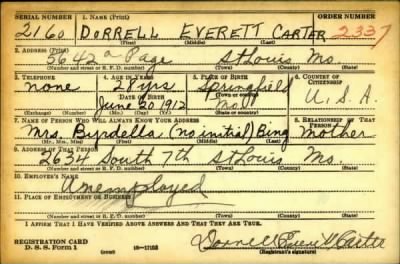 SERIAL NUMBER 1. NAME (Print) ORDER NUMBER
2160 DORRELL EVERETT CARTER 2337
(First) (Middle) (Last)
2. ADDRESS (Print)
5642a Page St Louis Mo.
(Number and street or R. F. D. number) (Town) (County) (State)
3. TELEPHONE 4. AGE IN YEARS 5. PLACE OF BIRTH 6. COUNTRY OF CITIZENSHIP
none 28 yrs Springfield
DATE OF BIRTH (Town or county)
June 20 1912 Mo. U.S.A.
(Exchange) (Number) (Mo.) (Day) (Yr.) (State or country)
7. NAME OF PERSON WHO WILL ALWAYS KNOW YOUR ADDRESS 8. RELATIONSHIP OF THAT PERSON
Mrs. Byrdella (no initial) Bing Mother
(Mr., Mrs., Miss) (First) (Middle) (Last)
9. ADDRESS OF THAT PERSON
2634 South 7th St Louis Mo.
(Number and street or R. F. D. number) (Town) (County) (State)
10. EMPLOYER'S NAME
Unemployed
11. PLACE OF EMPLOYMENT OR BUSINESS
(Number and street or R. F. D. number) (Town) (County) (State)
I AFFIRM THAT I HAVE VERIFIED ABOVE ANSWERS AND THAT THEY ARE TRUE.
REGISTRATION CARD
D. S. S. Form 1 16-17105 Dorrell Everett Carter
(Registrant's signature)